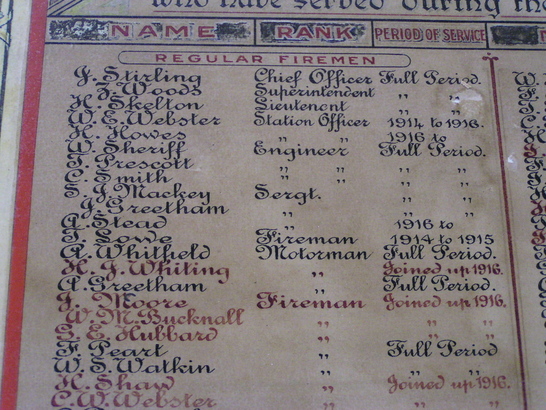 who have served during the
NAME RANK PERIOD OF SERVICE
REGULAR FIREMEN
J. Stirling Chief Officer Full Period.
Z. Woods Superintendent " "
H. Skelton Lieutenant " "
W. E. Webster Station Officer 1914 to 1916.
H. Howes " " 1916 to
W. Sheriff Engineer Full Period.
T. Prescott " " " "
C. Smith " " " "
S. J. Mackey Sergt. " "
J. Greetham " " "
A. Stead 1916 to
T. Lowe Fireman 1914 to 1915
A. Whitfield Motorman Full Period.
H. J. Whiting " Joined up 1916.
A. Greetham " Full Period.
J. Moore Fireman Joined up 1916.
W. M. Bucknall " " "
G. E. Hubbard " " "
F. Peart " Full Period
W. S. Watkin " " "
H. Shaw " Joined up 1916.
C. W. Webster " " "